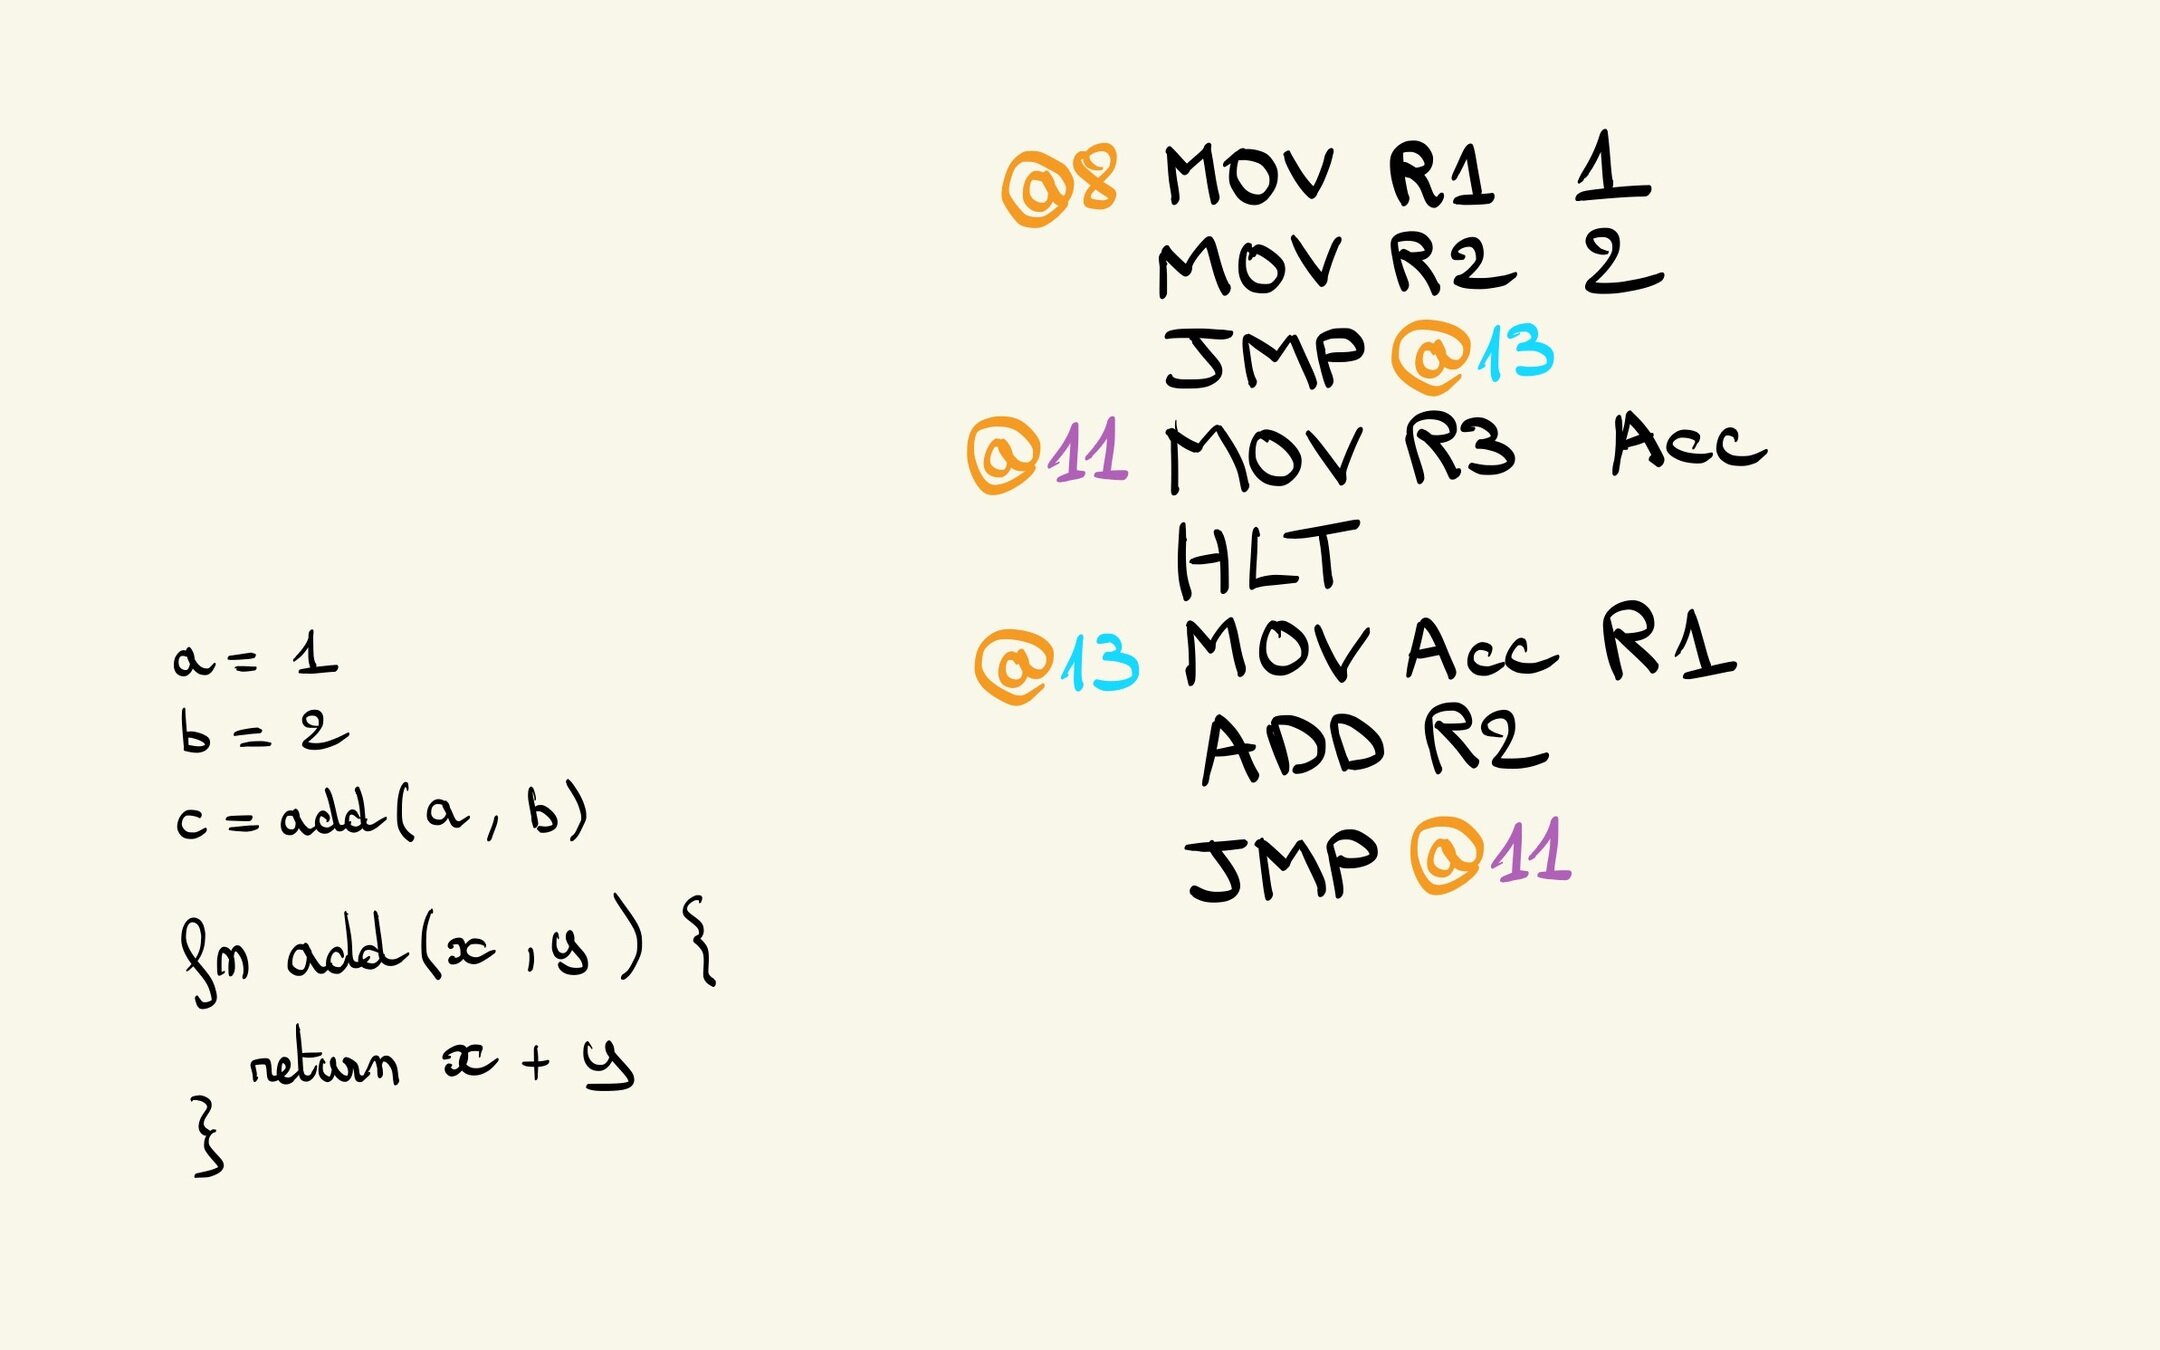 a = 1
b = 2
c = add(a, b)
fn add(x, y) {
return x + y
}
@8 MOV R1 1
MOV R2 2
JMP @13
@11 MOV R3 Acc
HLT
@13 MOV Acc R1
ADD R2
JMP @11